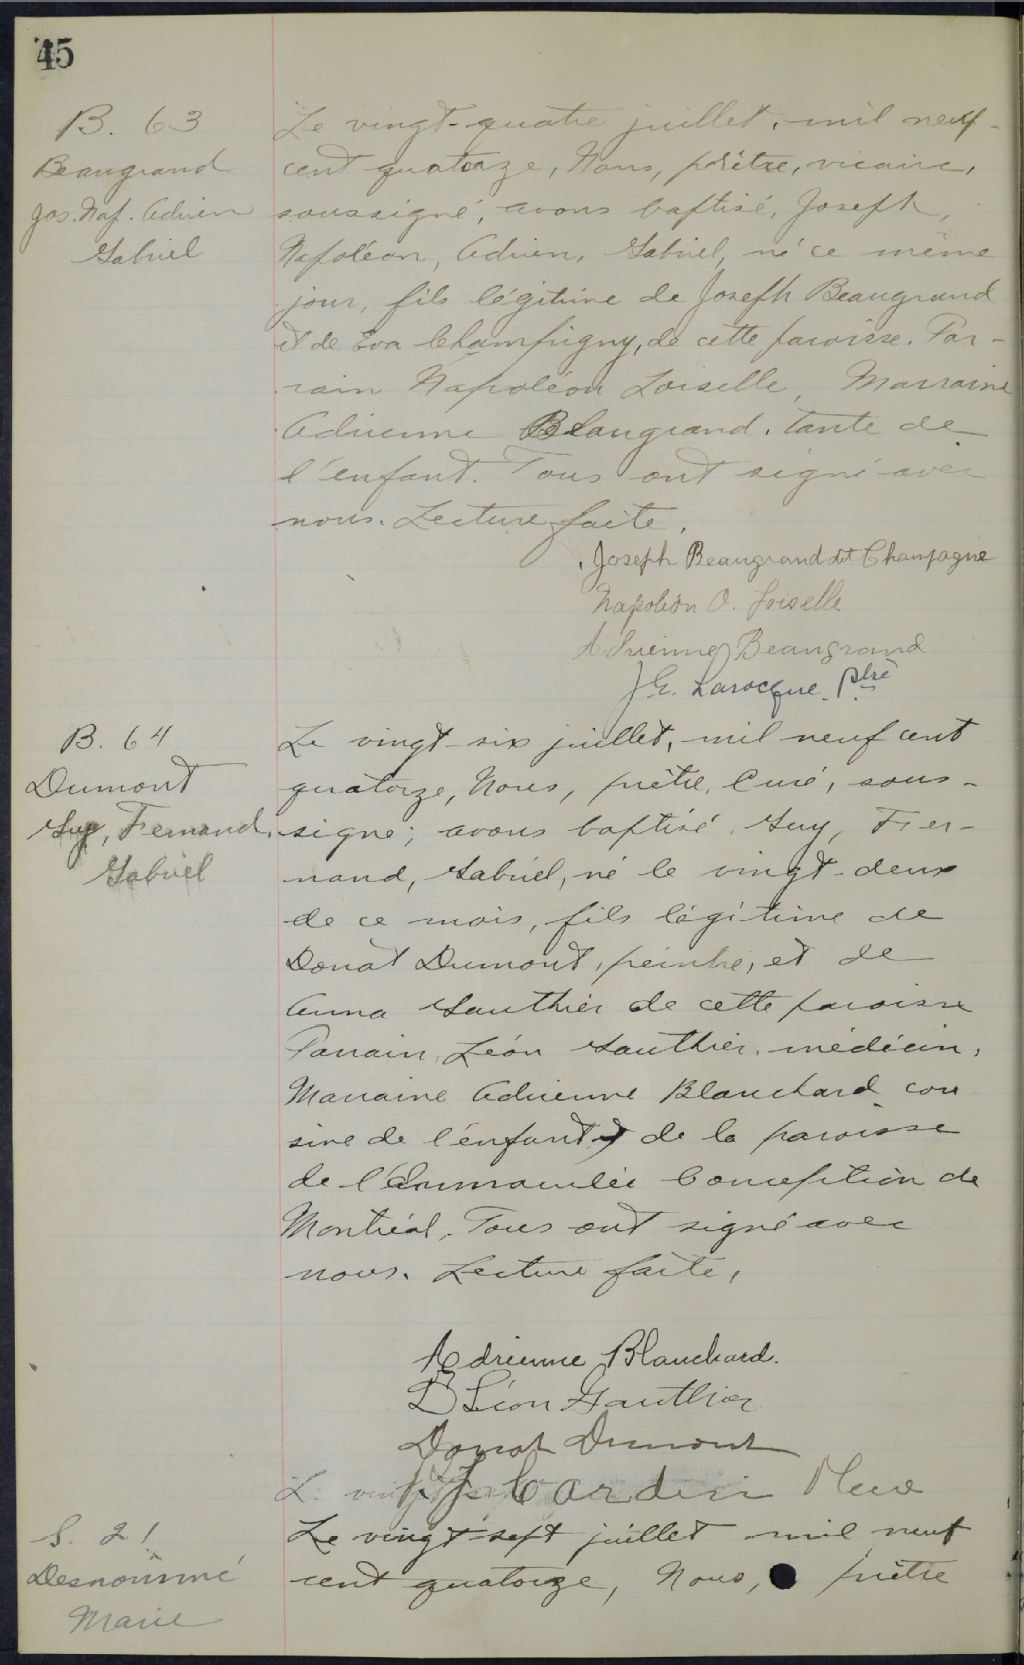 45
B. 63
Beaugrand
Jos. Nap. Adrien
Gabriel
Le vingt-quatre juillet, mil neuf-
cent quatorze, Nous, prêtre, vicaire,
soussigné, avons baptisé, Joseph,
Napoléon, Adrien, Gabriel, né ce même
jour, fils légitime de Joseph Beaugrand
et de Eva Champigny, de cette paroisse. Par-
rain Napoléon Loiselle, Marraine
Adrienne Beaugrand, tante de
l'enfant. Tous ont signé avec
nous. Lecture faite.
Joseph Beaugrand dit Champagne
Napoléon O. Loiselle
Adrienne Beaugrand
J. E. Larocque Ptre
B. 64
Dumont
Guy, Fernand,
Gabriel
Le vingt-six juillet, mil neuf cent
quatorze, Nous, prêtre, Curé, sous-
signé; avons baptisé, Guy, Fer-
nand, Gabriel, né le vingt-deux
de ce mois, fils légitime de
Donat Dumont, peintre, et de
Anna Gauthier de cette paroisse
Parrain, Léon Gauthier, médecin,
Marraine Adrienne Blanchard cou
sine de l'enfant de la paroisse
de l'Immaculée Conception de
Montréal. Tous ont signé avec
nous. Lecture faite,
Adrienne Blanchard.
D Léon Gauthier
Donat Dumont
Cardin
S. 21
Desnommé
Marie
Le vingt-sept juillet mil neuf
cent quatorze, Nous, prêtre